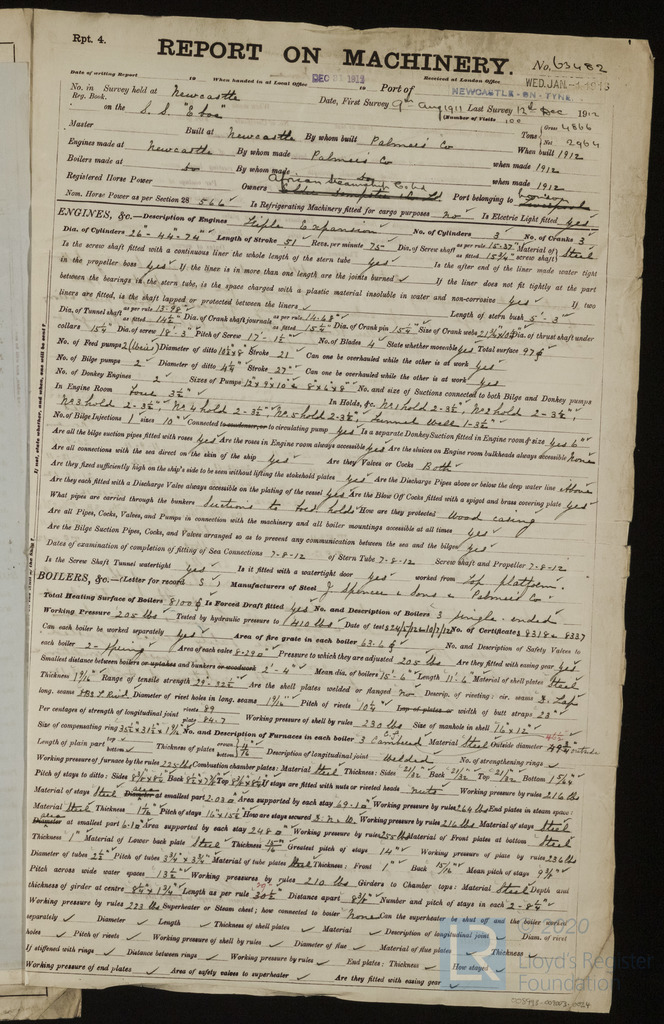 Rpt. 4.
REPORT ON MACHINERY. No. 63482
Date of writing Report 19 When handed in at Local Office DEC 31 1912 19 Received at London Office WED. JAN. 1913
Port of NEWCASTLE-ON-TYNE
No. in Reg. Book. Survey held at Newcastle Date, First Survey 9th Aug 1911 Last Survey 12th Dec 1912
on the S.S. "Eboe" (Number of Visits 100
Tons Gross 4866 Net 2964
Master Built at Newcastle By whom built Palmers Co When built 1912
Engines made at Newcastle By whom made Palmers Co when made 1912
Boilers made at do By whom made do when made 1912
Registered Horse Power Owners African Steamship Co Ltd Port belonging to London
Nom. Horse Power as per Section 28 566 Is Refrigerating Machinery fitted for cargo purposes no Is Electric Light fitted yes
ENGINES, &c.—Description of Engines Triple Expansion No. of Cylinders 3 No. of Cranks 3
Dia. of Cylinders 26"-44"-74" Length of Stroke 51 Revs. per minute 75 Dia. of Screw shaft as per rule 15.37 as fitted 15 3/4 Material of screw shaft Steel
Is the screw shaft fitted with a continuous liner the whole length of the stern tube yes Is the after end of the liner made water tight
in the propeller boss yes If the liner is in more than one length are the joints burned ✓ If the liner does not fit tightly at the part
between the bearings in the stern tube, is the space charged with a plastic material insoluble in water and non-corrosive yes If two
liners are fitted, is the shaft lapped or protected between the liners ✓ Length of stern bush 5'-3"
Dia. of Tunnel shaft as per rule 13.98 as fitted 14 1/2 Dia. of Crank shaft journals as per rule 14.68 as fitted 15 1/4 Dia. of Crank pin 15 1/4 Size of Crank webs Dia. of thrust shaft under
collars 15 1/4 Dia. of screw 18'-3" Pitch of Screw 17'-1 1/2" No. of Blades 4 State whether moveable yes Total surface 97
No. of Feed pumps 2 (Weirs) Diameter of ditto Stroke 21 Can one be overhauled while the other is at work yes
No. of Bilge pumps 2 Diameter of ditto 4 1/2 Stroke 27" Can one be overhauled while the other is at work yes
No. of Donkey Engines 2 Sizes of Pumps No. and size of Suctions connected to both Bilge and Donkey pumps
In Engine Room Four 3 1/2" In Holds, &c. No 1 hold 2-3 1/2", No 2 hold 2-3 1/2",
No 3 hold 2-3 1/2", No 4 hold 2-3 1/2", No 5 hold 2-3 1/2", Tunnel Well 1-3 1/2"
No. of Bilge Injections 1 sizes 10" Connected to condenser, or to circulating pump yes Is a separate Donkey Suction fitted in Engine room & size yes 6"
Are all the bilge suction pipes fitted with roses yes Are the roses in Engine room always accessible yes Are the sluices on Engine room bulkheads always accessible none
Are all connections with the sea direct on the skin of the ship yes Are they Valves or Cocks Both
Are they fixed sufficiently high on the ship's side to be seen without lifting the stokehold plates yes Are the Discharge Pipes above or below the deep water line above
Are they each fitted with a Discharge Valve always accessible on the plating of the vessel yes Are the Blow Off Cocks fitted with a spigot and brass covering plate yes
What pipes are carried through the bunkers Suctions to fore holds How are they protected Wood casing
Are all Pipes, Cocks, Valves, and Pumps in connection with the machinery and all boiler mountings accessible at all times yes
Are the Bilge Suction Pipes, Cocks, and Valves arranged so as to prevent any communication between the sea and the bilges yes
Dates of examination of completion of fitting of Sea Connections 7-8-12 of Stern Tube 7-8-12 Screw shaft and Propeller 7-8-12
Is the Screw Shaft Tunnel watertight yes Is it fitted with a watertight door yes worked from Top platform
BOILERS, &c.—(Letter for record S) Manufacturers of Steel J Spencer & Sons & Palmers Co
Total Heating Surface of Boilers 8100 Is Forced Draft fitted yes No. and Description of Boilers 3 single ended
Working Pressure 205 lbs Tested by hydraulic pressure to 410 lbs Date of test No. of Certificate 8318 & 8337
Can each boiler be worked separately yes Area of fire grate in each boiler 63.6 No. and Description of Safety Valves to
each boiler 2-spring Area of each valve 8.290 Pressure to which they are adjusted 205 lbs Are they fitted with easing gear yes
Smallest distance between boilers or uptakes and bunkers or woodwork 2'-4" Mean dia. of boilers 15'-6 Length 11'-6 Material of shell plates Steel
Thickness Range of tensile strength 29-32 1/2 Are the shell plates welded or flanged no Descrip. of riveting: cir. seams D. Lap
long. seams Diameter of rivet holes in long. seams Pitch of rivets 10 1/4 Lap of plates or width of butt straps 23"
Per centages of strength of longitudinal joint rivets 89 plate 84.7 Working pressure of shell by rules 230 lbs Size of manhole in shell 16 x 12"
Size of compensating ring No. and Description of Furnaces in each boiler 3 Cambered Material Steel Outside diameter
Length of plain part top bottom Thickness of plates crown bottom Description of longitudinal joint Welded No. of strengthening rings ✓
Working pressure of furnace by the rules 225 lbs Combustion chamber plates: Material Steel Thickness: Sides 21/32 Back 21/32 Top 21/32 Bottom 15/16
Pitch of stays to ditto: Sides Back Top If stays are fitted with nuts or riveted heads nuts Working pressure by rules 216 lbs
Material of stays Steel area at smallest part 2.030 Area supported by each stay 69.10 Working pressure by rules 264 lbs End plates in steam space:
Material Steel Thickness Pitch of stays How are stays secured D. N. W. Working pressure by rules 216 lbs Material of stays Steel
area at smallest part 6.10 Area supported by each stay 248 Working pressure by rules 255 lbs Material of Front plates at bottom Steel
Thickness 1" Material of Lower back plate Steel Thickness 15/16 Greatest pitch of stays 14" Working pressure of plate by rules 236 lbs
Diameter of tubes 2 1/2 Pitch of tubes 3 3/4 x 3 3/4 Material of tube plates Steel Thickness: Front 1" Back 15/16 Mean pitch of stays 9 3/8
Pitch across wide water spaces 13 1/2 Working pressures by rules 210 lbs Girders to Chamber tops: Material Steel Depth and
thickness of girder at centre 8 1/4 x 1 3/4 Length as per rule Distance apart 8 3/4 Number and pitch of stays in each 2-8 1/4
Working pressure by rules 223 lbs Superheater or Steam chest; how connected to boiler none Can the superheater be shut off and the boiler worked
separately ✓ Diameter ✓ Length ✓ Thickness of shell plates ✓ Material ✓ Description of longitudinal joint ✓ Diam. of rivet
holes ✓ Pitch of rivets ✓ Working pressure of shell by rules ✓ Diameter of flue ✓ Material of flue plates ✓ Thickness ✓
If stiffened with rings ✓ Distance between rings ✓ Working pressure by rules ✓ End plates: Thickness ✓ How stayed ✓
Working pressure of end plates ✓ Area of safety valves to superheater ✓ Are they fitted with easing gear ✓
© 2020
Lloyd's Register
Foundation